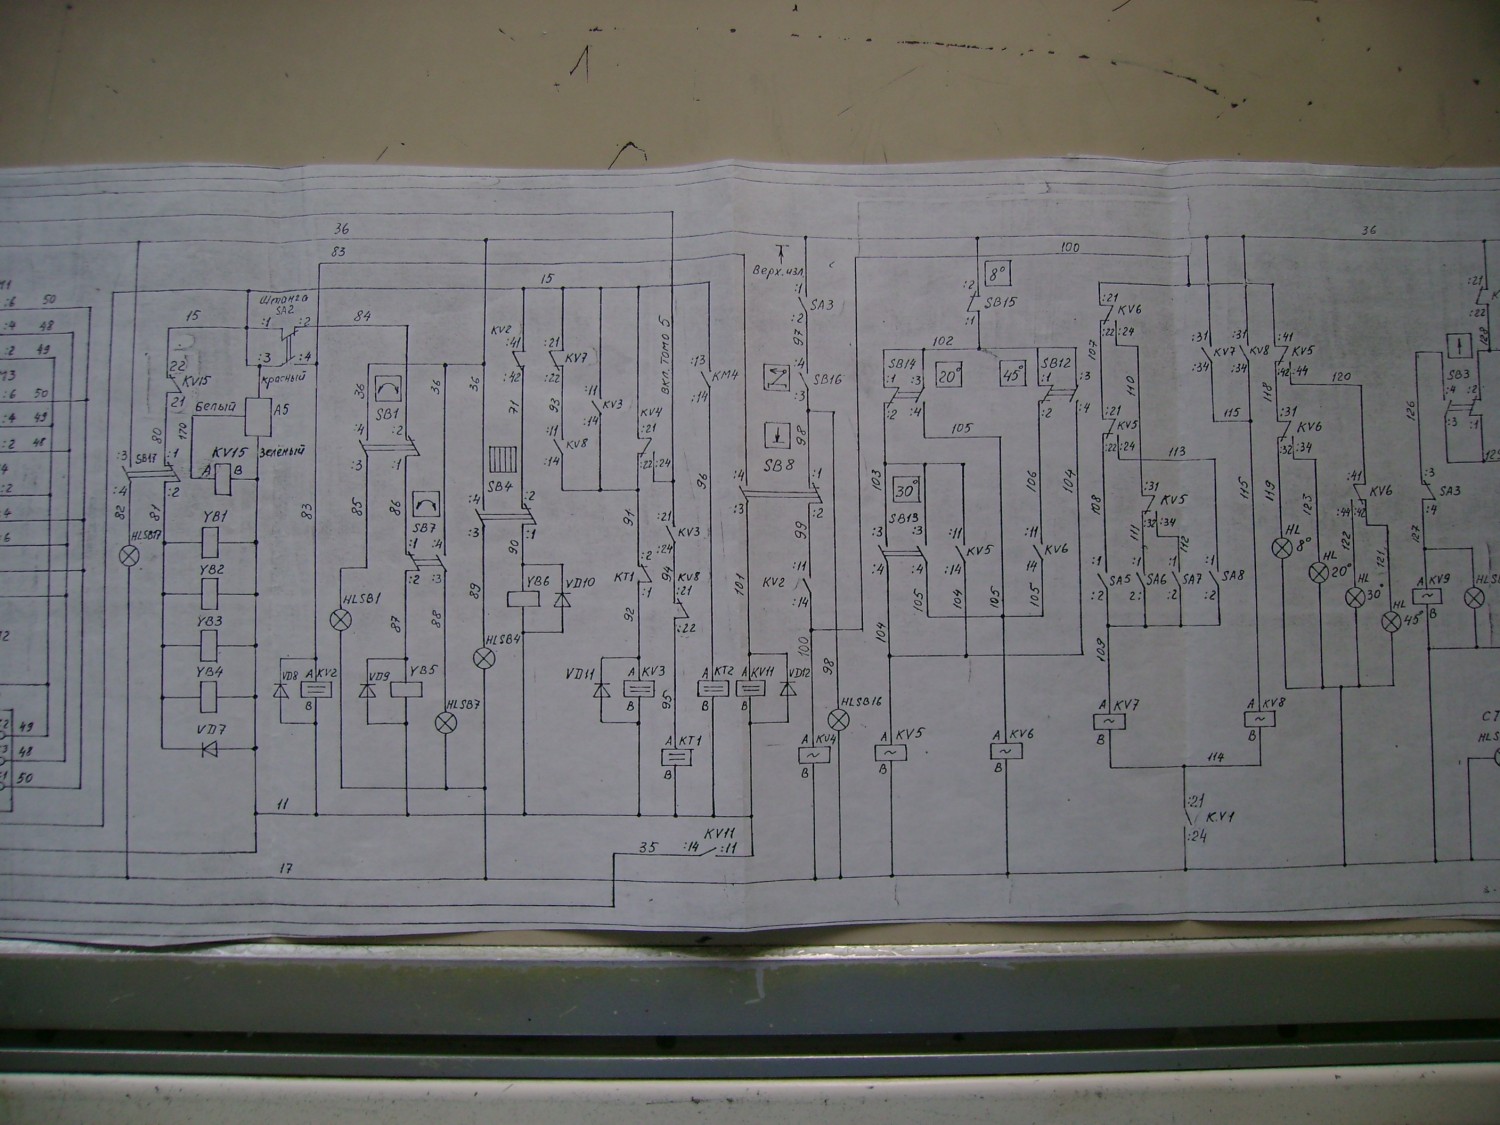 36
36
83
100
15
Верх.изл
8°
:2
SB15
:1
:1
SA3
:2
97
:21
KV6
:22
:24
107
110
:31
KV7
:34
:31
KV8
:34
:41
KV5
:42
:44
118
120
:6 50
:4 48
:2 49
М3
:6 50
:4 49
:2 48
15
Штанга
SA2
:1
:2
84
:3
:4
красный
22
KV15
21
Белый
А5
зелёный
80
170
KV15
A
B
:3
SB17
:4
:1
:2
82
81
HLSB17
YB1
YB2
YB3
YB4
VD7
83
36
SB1
36
36
:4
:3
:2
:1
85
86
SB7
:2
:4
:3
87
88
89
HLSB1
VD8
A
KV2
B
VD9
YB5
HLSB7
KV2
:41
:42
71
SB4
:4
:3
:2
:1
90
YB6
VD10
HLSB4
:21
KV7
:22
93
:11
KV8
:14
:11
KV3
:14
KV4
:21
:22
:24
вкл.томо 5
91
:21
KV3
:24
:2
KT1
:1
94
KV8
:21
:22
92
VD11
A
KV3
B
95
A
KT1
B
:13
KM4
:14
96
A
KT2
B
101
A
KV11
B
VD12
:4
SB16
:3
98
SB8
:4
:3
:1
:2
99
KV2
:11
:14
100
98
HLSB16
A
KV4
B
102
SB14
:1
:3
:2
:4
20°
45°
SB12
:1
:3
:2
:4
105
103
30°
SB13
:3
:3
:4
:4
:11
KV5
:14
106
104
:11
KV6
14
105
104
105
105
104
A
KV5
B
A
KV6
B
:21
KV5
:22
:24
113
108
:31
KV5
:32
:34
111
112
:1
SA5
:2
:1
SA6
2:
:1
SA7
:2
:1
SA8
:2
109
A
KV7
B
A
KV8
B
114
:21
KV1
:24
115
115
:31
KV6
:32
:34
119
123
HL
8°
HL
20°
:41
KV6
:44
:42
122
121
HL
30°
HL
45°
126
:21
:22
128
SB3
:4
:2
:3
:1
:3
SA3
:4
127
A
KV9
B
49
48
50
11
35
:14
KV11
:11
17